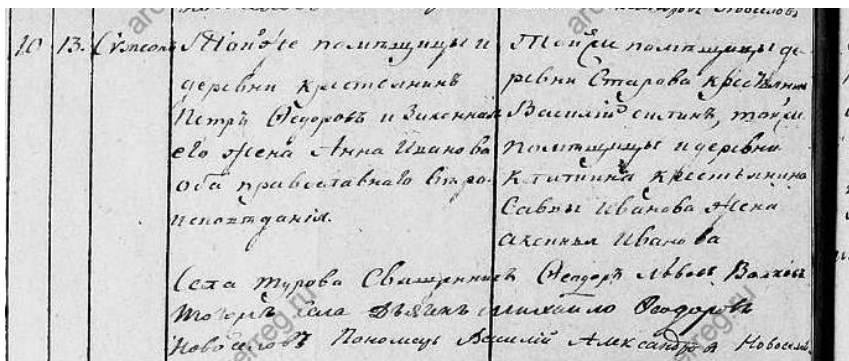 10 13. Симеонъ Той же помѣщицы и
деревни крестьянинъ
Петръ Ѳедоровъ и законная
его жена Анна Иванова
оба православнаго вѣро-
исповѣданія.
Той же помѣщицы де-
ревни Старова крестьянинъ
Василій той же
помѣщицы и деревни
крестьянина
Саввы Иванова жена
Аксинья Иванова
Села Турова Священникъ Ѳеодоръ Львовъ Волковъ
тогожъ села Дьячекъ Михайло Ѳеодоровъ
Новоселовъ Пономарь Василій Александровъ